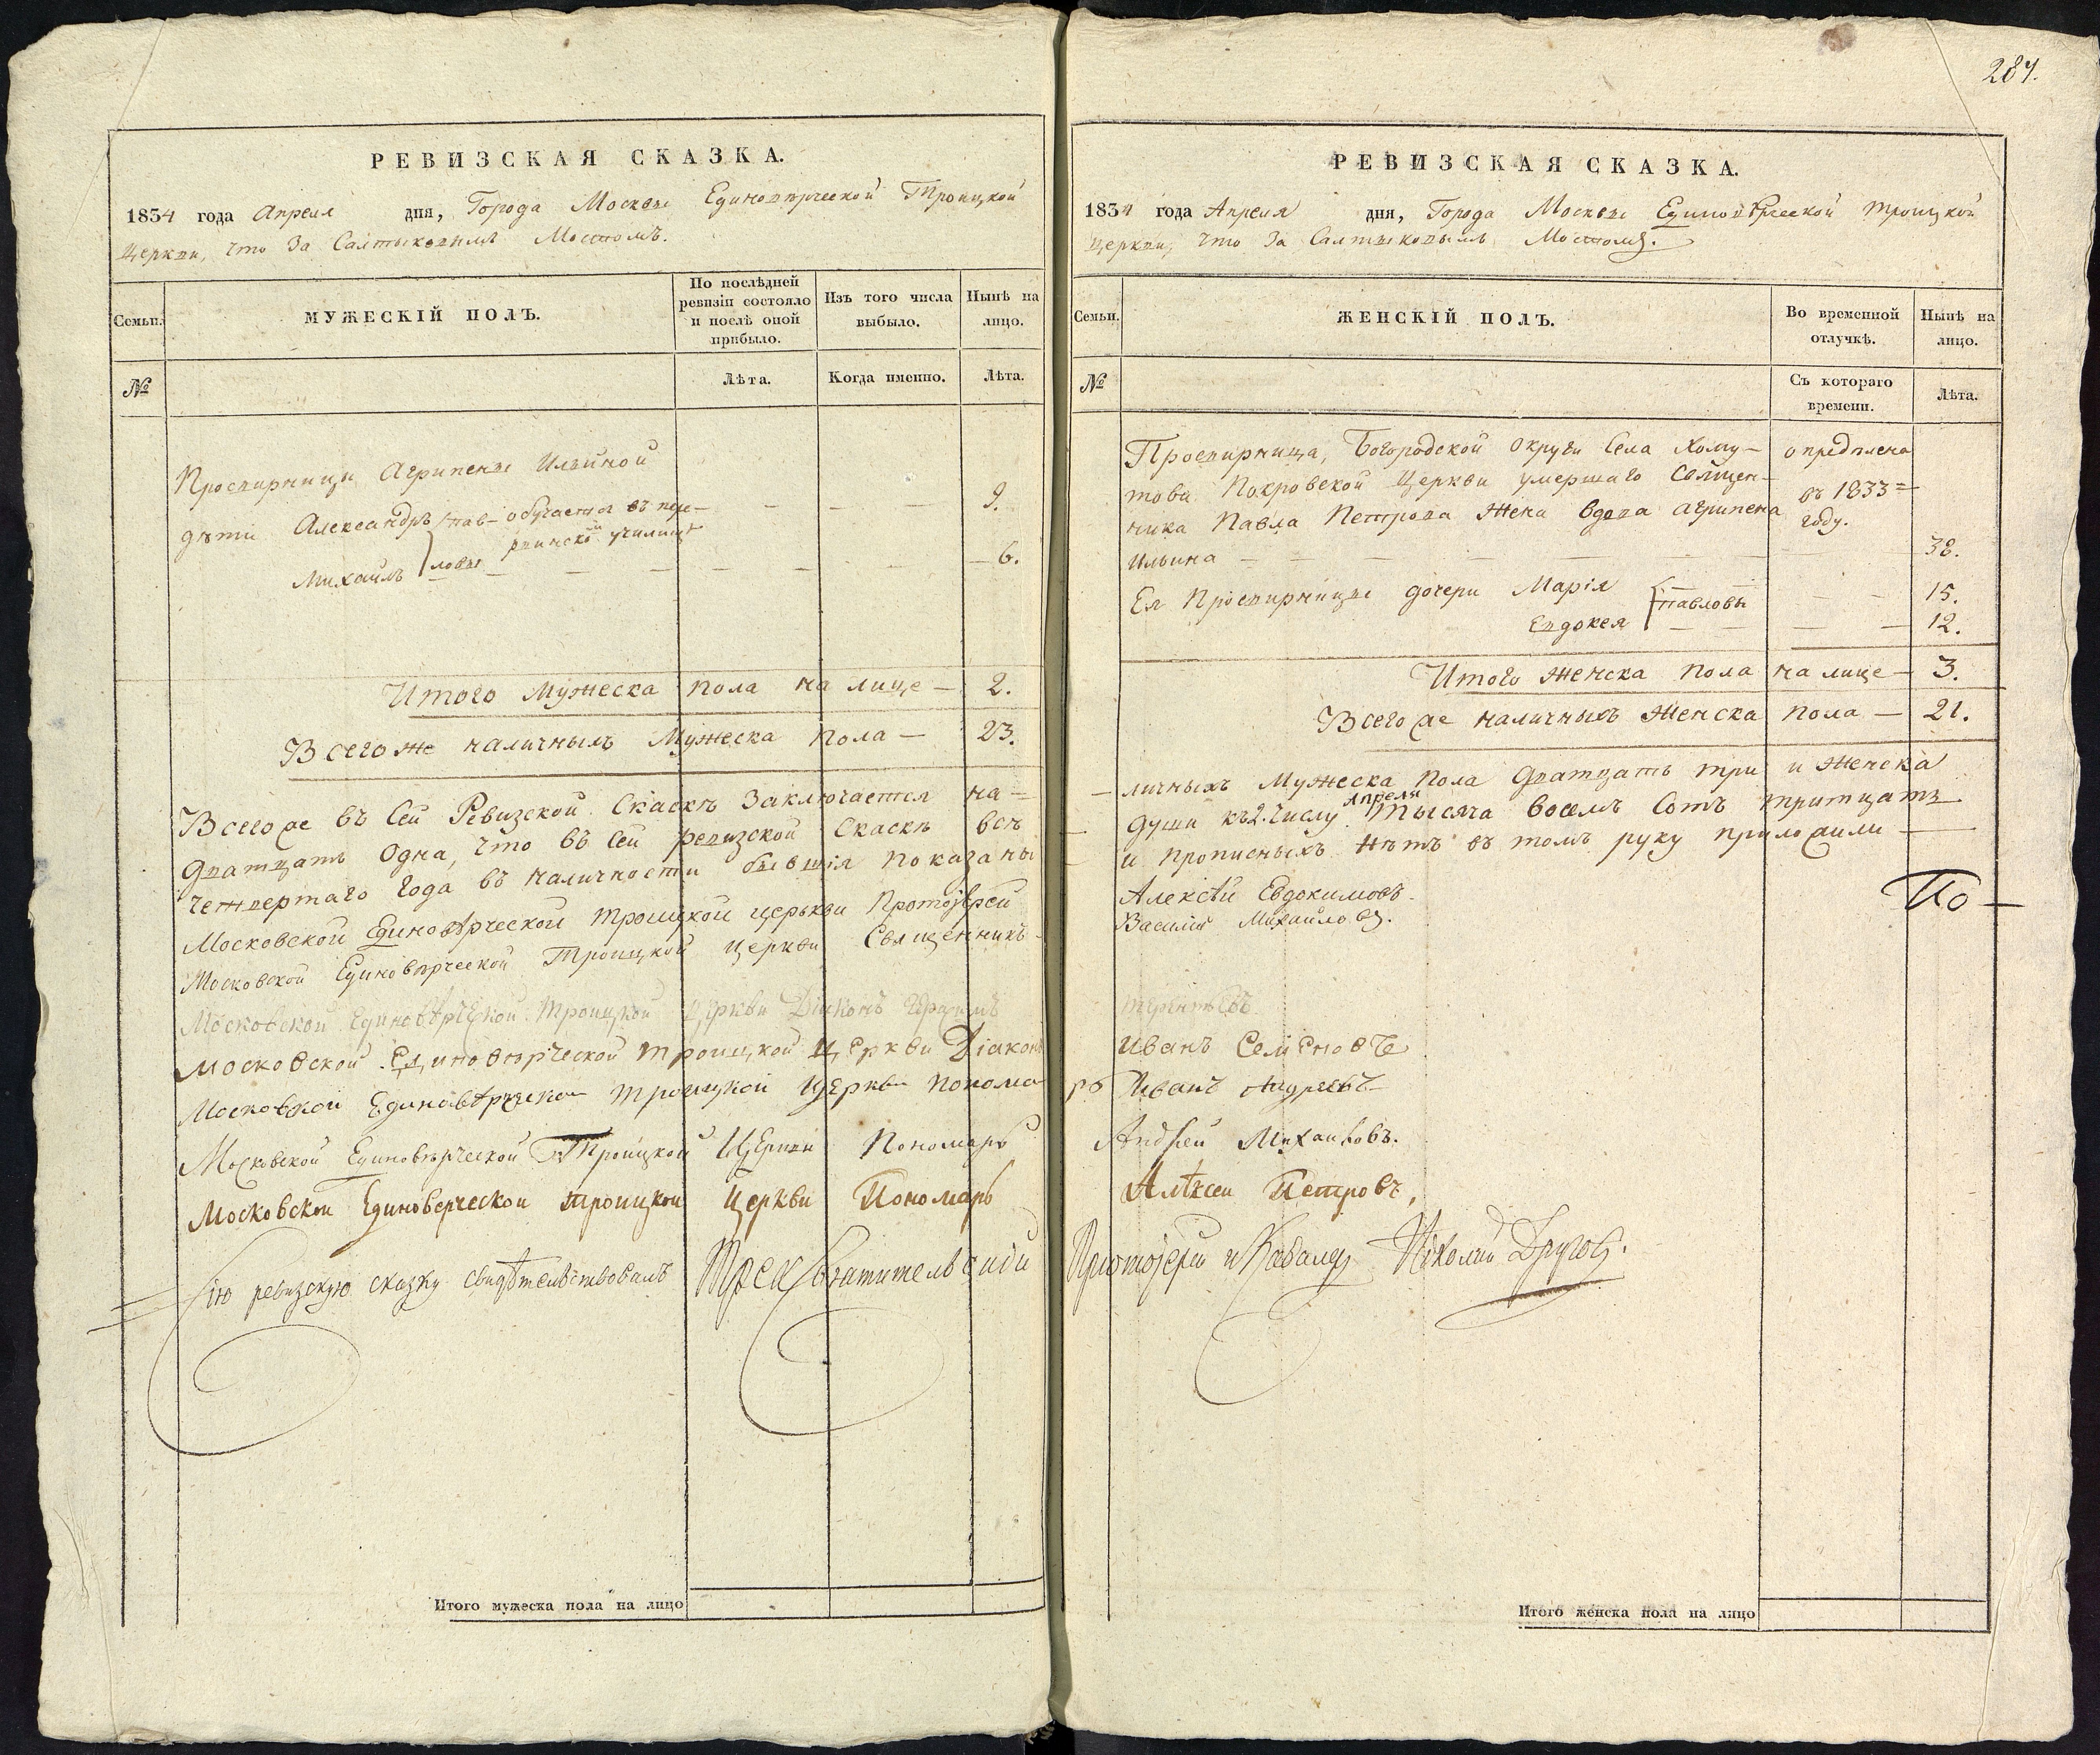 РЕВИЗСКАЯ СКАЗКА.
1834 года Апреля дня, Города Москвы Единовѣрческой Троицкой
Церкви, что За Салтыковымъ Мостомъ.
Семьи.
МУЖЕСКІЙ ПОЛЪ.
По послѣдней ревизіи состояло и послѣ оной прибыло.
Изъ того числа выбыло.
Нынѣ на лицо.
№
Лѣта.
Когда именно.
Лѣта.
Просвирницы Агрипены Ильиной
дѣти Александръ Пав- обучается въ пере- 9.
рвинской училищѣ
Михаилъ ловы 6.
Итого Мужеска пола на лице — 2.
Всего же наличныхъ Мужеска пола — 23.
Всего же въ Сей Ревизской Скаскѣ Заключается на=
дватцать Одна, что въ Сей ревизской Скаскѣ всѣ
четвертаго Года въ наличности бывшія показаны
Московской Единовѣрческой Троицкой церькви Протоіерей
Московской Единовѣрческой Троицкой церкви Священникъ
Московской Единовѣрческой Троицкой Церкви Діаконъ
Московской Единовѣрческой троицкой Церкви Діаконъ
Московской Единовѣрческой троицкой Церкви понома
Московской Единовѣрческой Троицкой Церкви Пономарь
Московской Единоверческой троицкой церкви Пономарь
Сію ревизскую сказку свидѣтельствовалъ Трехсвятительскій
Итого мужеска пола на лицо
287.
РЕВИЗСКАЯ СКАЗКА.
1834 года Апреля дня, Города Москвы Единовѣрческой троицкой
Церкви, что За Салтыковымъ Мостомъ.
Семьи.
ЖЕНСКІЙ ПОЛЪ.
Во временной отлучкѣ.
Нынѣ на лицо.
№
Съ котораго времени.
Лѣта.
Просвирница, Богородской округи Села Хому- опредѣлена
това Покровской Церкви умершаго Священ- въ 1833=
ника Павла Петрова Жена вдова Агрипена году.
Ильина 38.
Ея Просвирницы дочери Марія Павловы 15.
Евдокея 12.
Итого Женска пола на лице — 3.
Всего же наличныхъ Женска пола — 21.
личныхъ Мужеска пола дватцать три и Женска
Апреля
души къ 2. числу тысяча восемь сотъ тритцать
и прописныхъ нѣтъ въ томъ руку приложили
Алексѣй Евдокимовъ.
Василій Михайловъ.
По—
терентьевъ
Иванъ Семеновъ
рь Иванъ Андреевъ
Андрей Михайловъ.
Алѣксеи Петровъ,
Протоіерей и Кавалеръ Николай Друговъ.
Итого женска пола на лицо